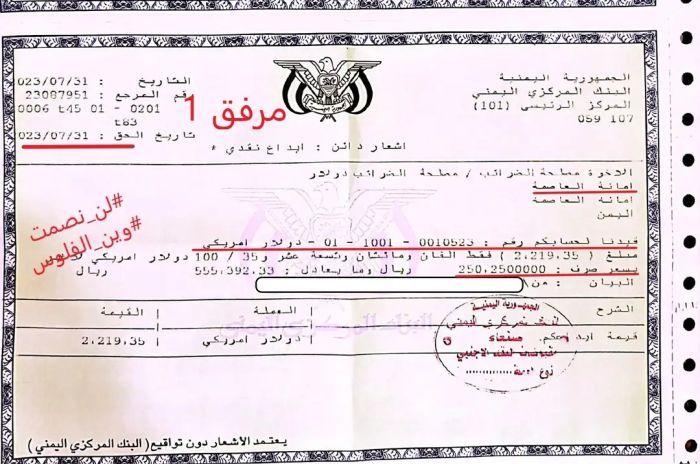 الجمهورية اليمنية
البنك المركزي اليمني
المركز الرئيسي (101)
059 107
التاريخ : 023/07/31
رقم المرجع : 23087951
0006 t45 01 - 0201
t63
تاريخ الحق : 023/07/31
مرفق 1
اشعار دائن : ايداع نقدي *
الاخوة مصلحة الضرائب / مصلحة الضرائب دولار
امانة العاصمة
امانة العاصمة
اليمن
#لن_نصمت
#وين_الفلوس
قيدنا لحسابكم رقم : 0010523 - 1001 - 01 - دولار امريكي
مبلغ ( 2,219.35 ) فقط الفان ومائتان وتسعة عشر و 35 / 100 دولار امريكي لا غير
بسعر صرف : 250.2500000 ريال وما يعادل : 555,392.33 ريال
البيان : من
الشرح العملة القيمة
قيمة ايداعكم دولار امريكي 2,219.35
الجمهورية اليمنية
البنك المركزي اليمني
صنعاء
البنك المركزي اليمني
يعتمد الاشعار دون تواقيع ( البنك المركزي اليمني )